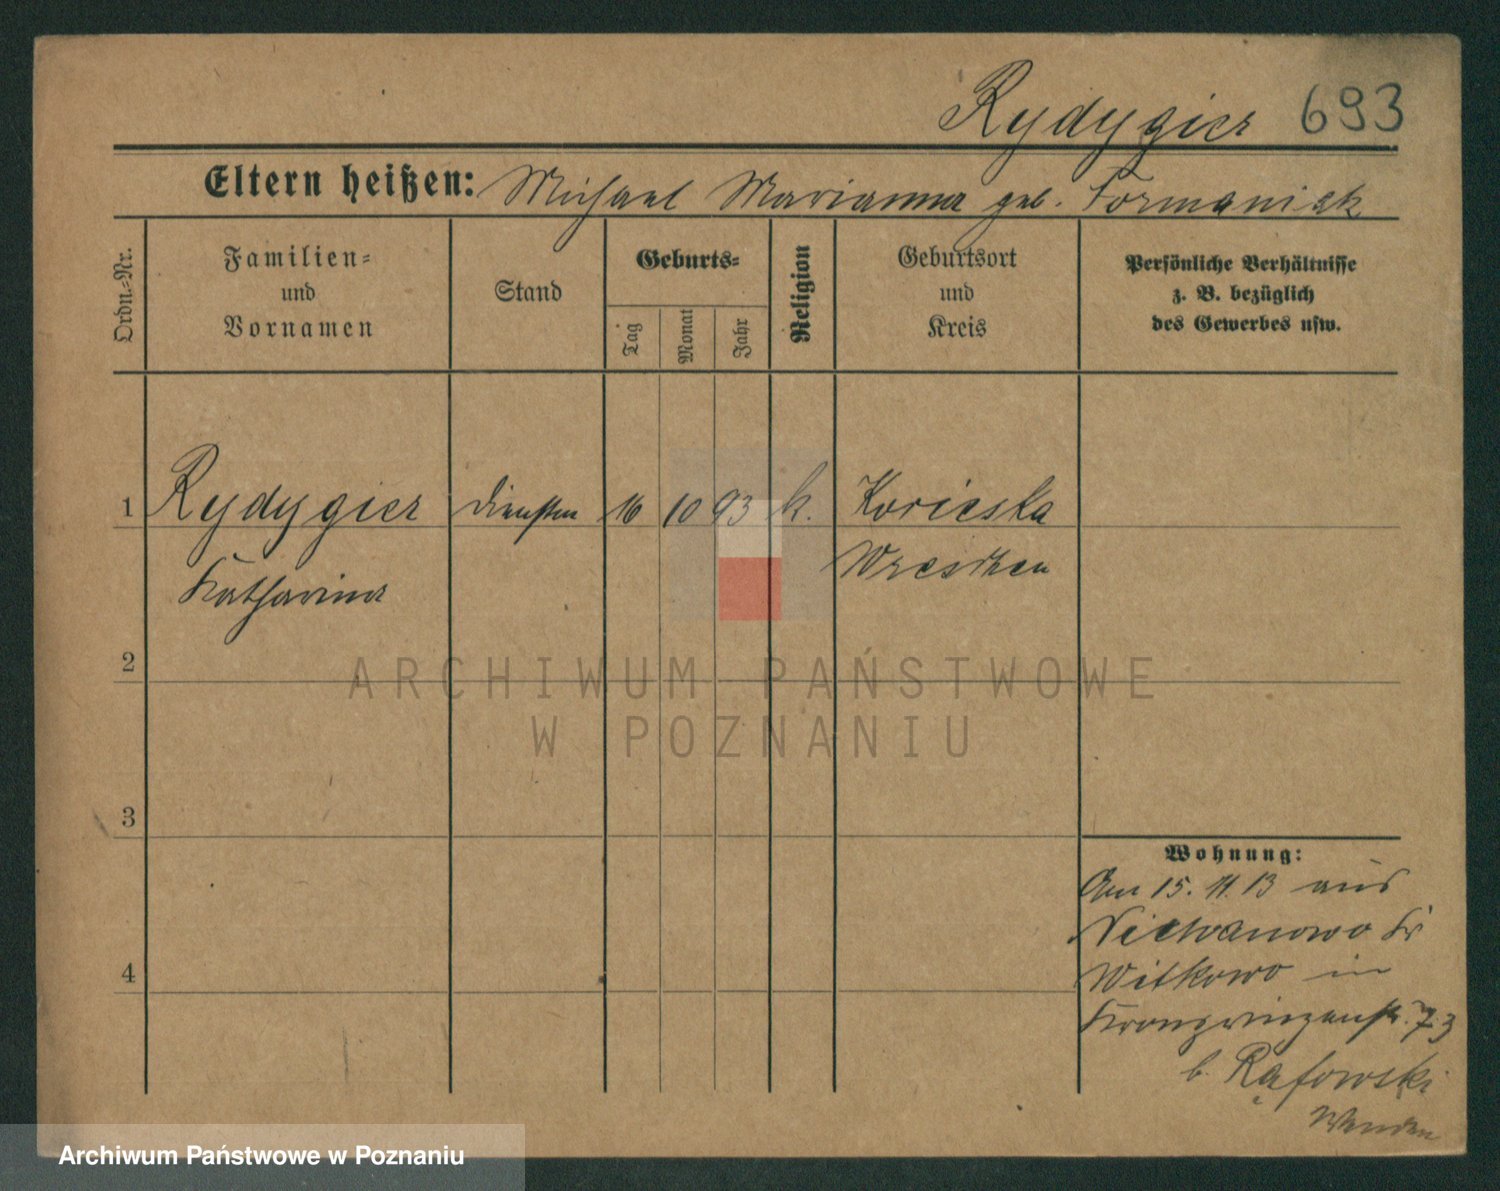 Rydygier 693
Eltern heißen: Michael Marianna geb. Formaniak
Ordn.-Nr.
Familien- und Vornamen
Stand
Geburts-
Tag
Monat
Jahr
Religion
Geburtsort und Kreis
Persönliche Verhältnisse
z. B. bezüglich
des Gewerbes usw.
1 Rydygier 16 10 93 k.
Katharina Wreschen
2
3
4
Wohnung:
Am 15. 11. 13 aus
Niechanowo Kr
Witkowo in
Kronprinzenstr.
b. Rąfowski
Wenden
ARCHIWUM PAŃSTWOWE
W POZNANIU
Archiwum Państwowe w Poznaniu